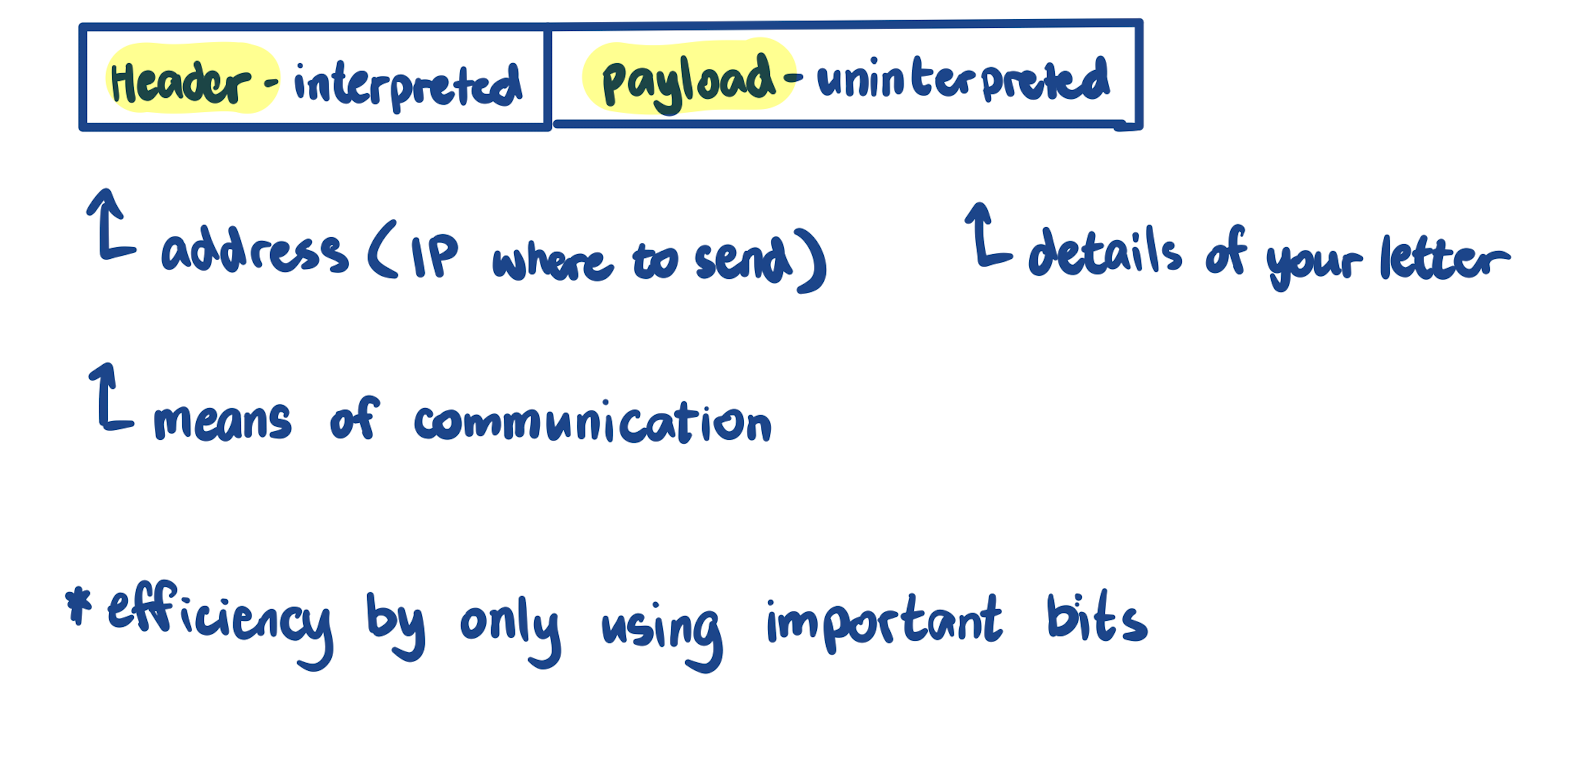 Header - interpreted
payload - uninterpreted
address (IP where to send)
details of your letter
means of communication
* efficiency by only using important bits